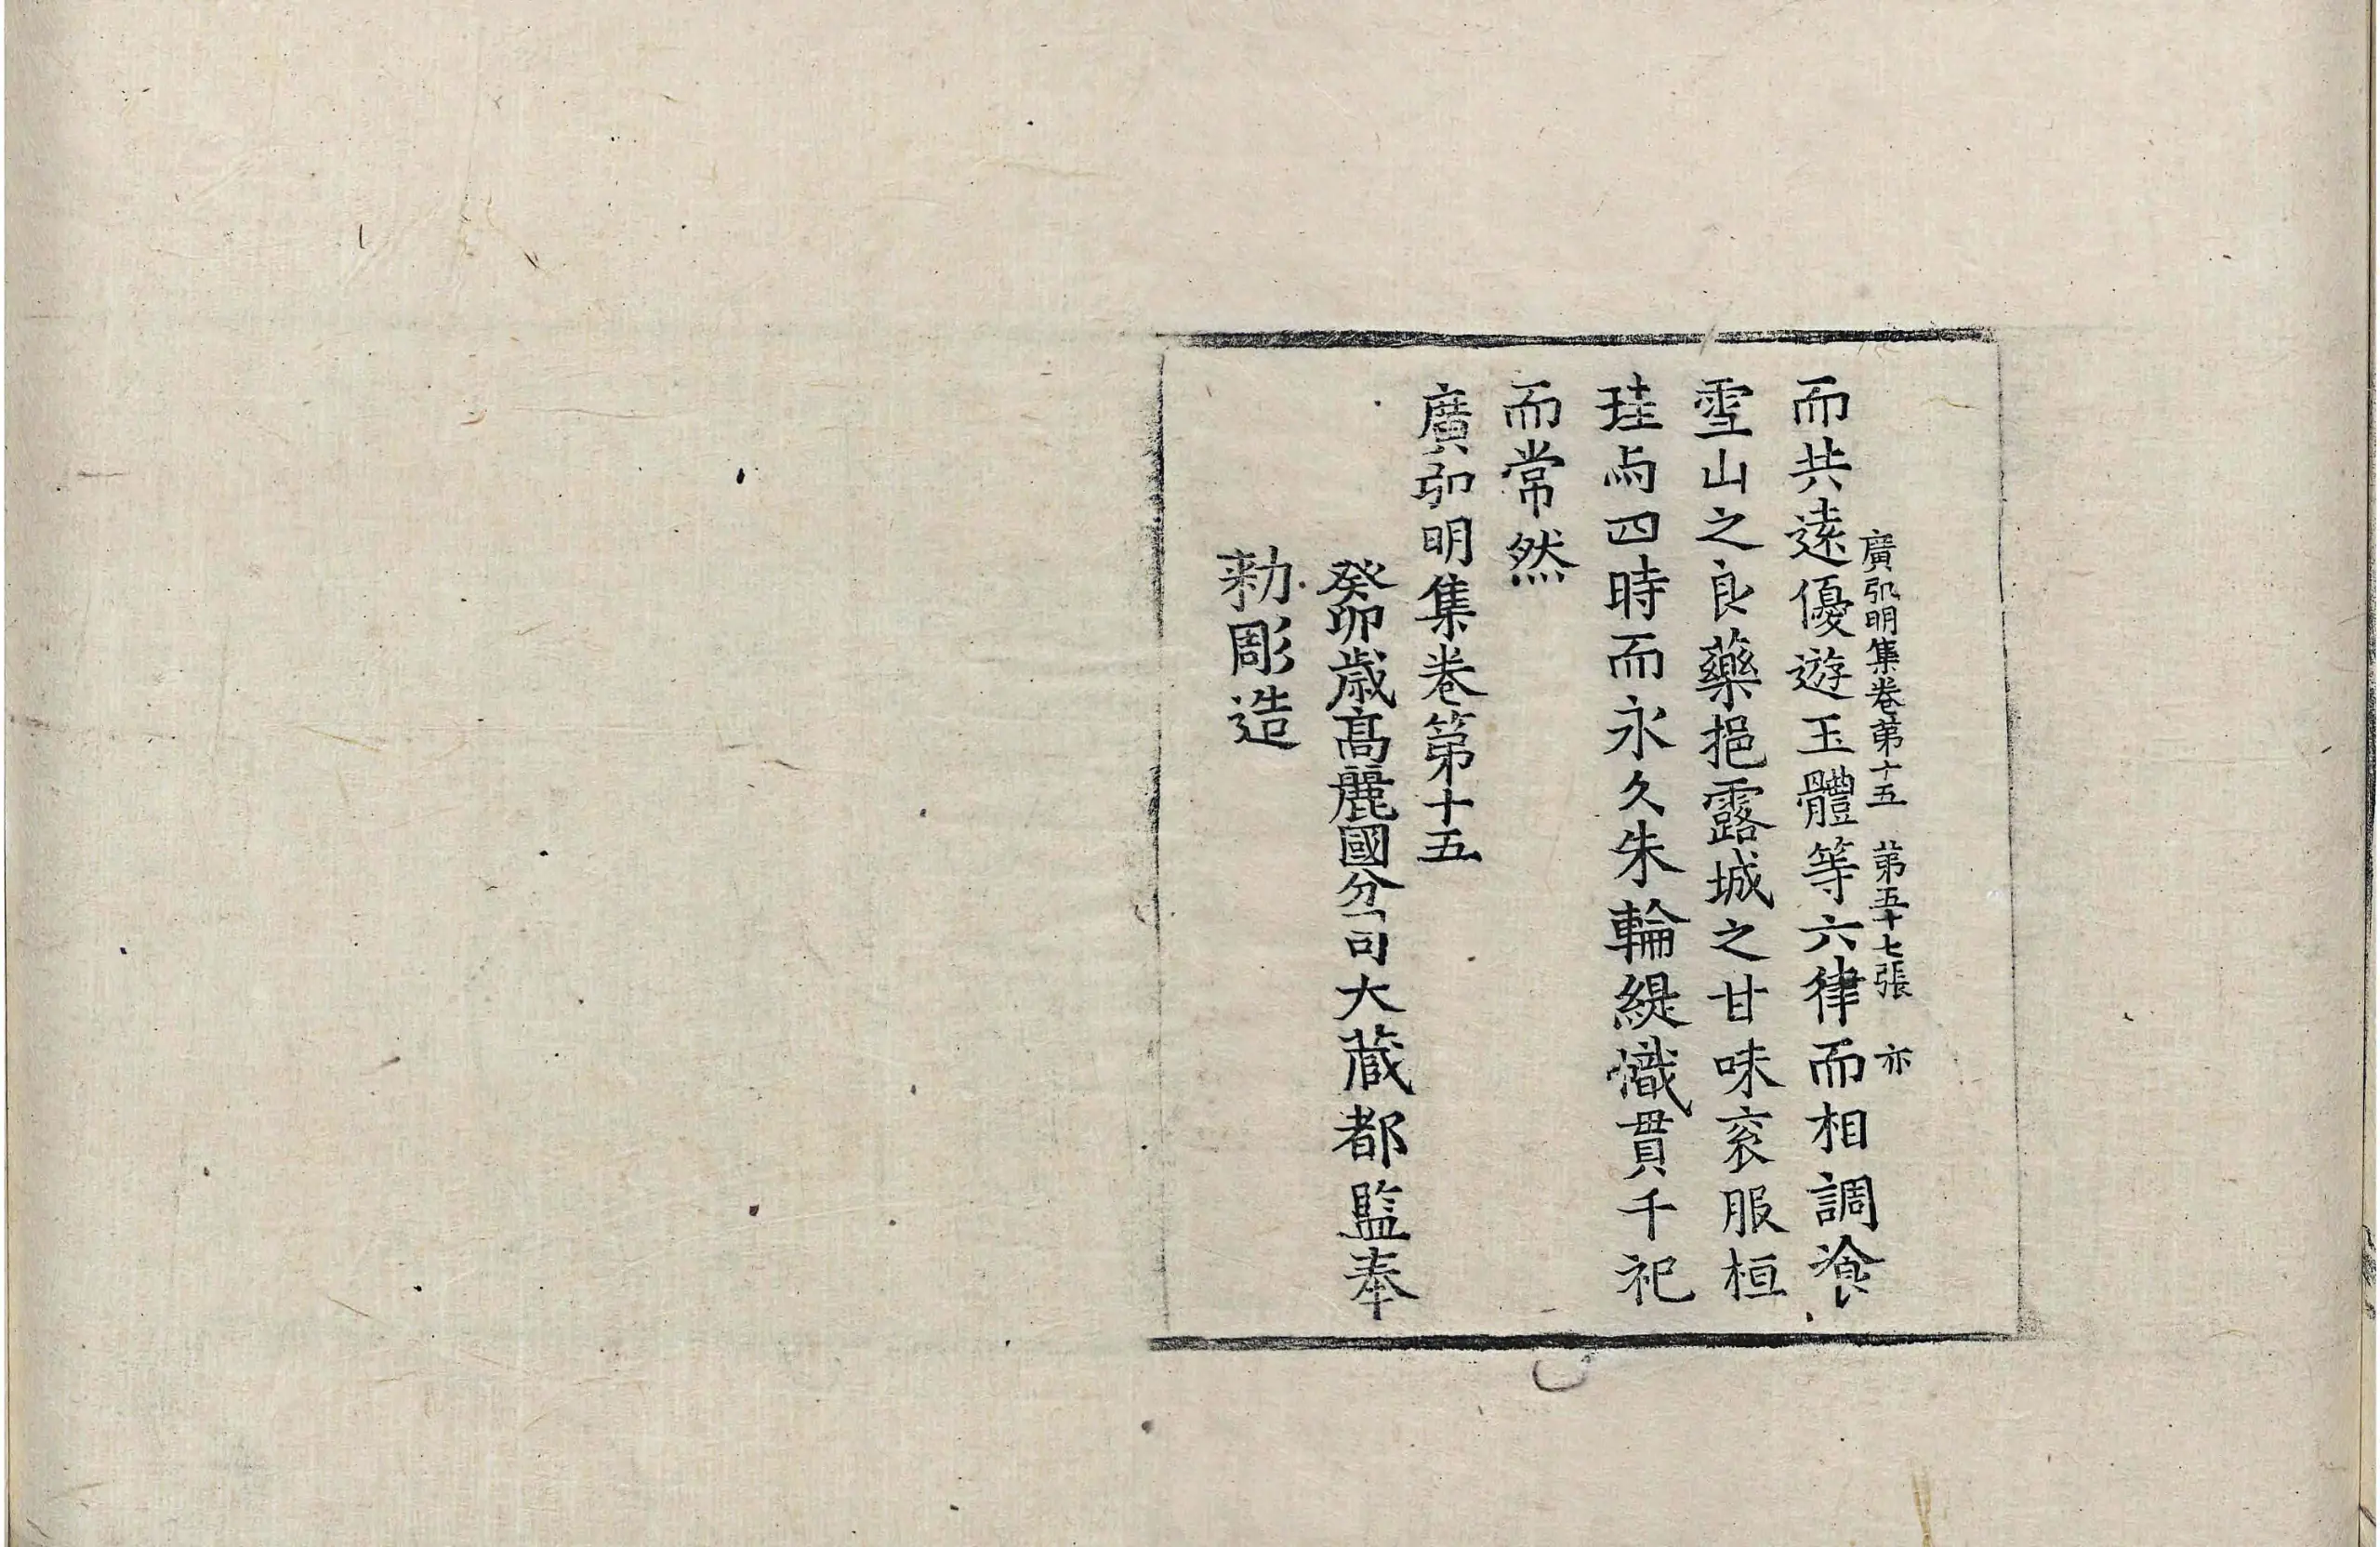 廣弘明集卷第十五 第五十七張 亦
而共遠優遊玉體等六律而相調飡
雪山之良藥挹露城之甘味衮服桓
珪与四時而永久朱輪緹幟貫千祀
而常然
廣弘明集卷第十五
癸卯歲高麗國分司大藏都監奉
勅彫造